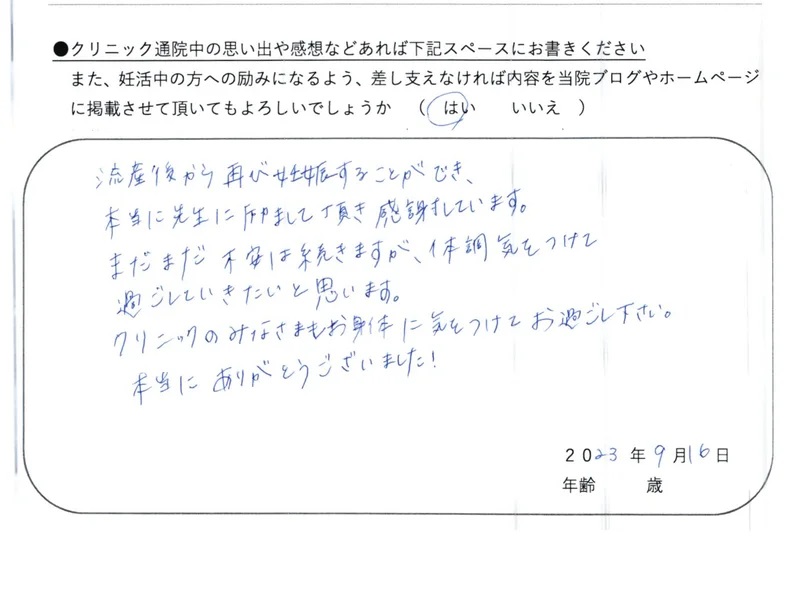 ●クリニック通院中の思い出や感想などあれば下記スペースにお書きください
また、妊活中の方への励みになるよう、差し支えなければ内容を当院ブログやホームページ
に掲載させて頂いてもよろしいでしょうか （ はい いいえ ）
流産後から再び妊娠することができ、
本当に先生に励まして頂き感謝しています。
まだまだ不安は続きますが、体調気をつけて
過ごしていきたいと思います。
クリニックのみなさまもお身体に気をつけてお過ごし下さい。
本当にありがとうございました!
2023年9月16日
年齢 歳